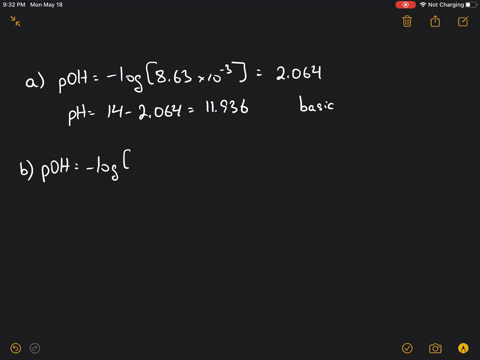 9:32 PM Mon May 18
Not Charging
a) pOH = -log[8.63 × 10⁻³] = 2.064
pH = 14 - 2.064 = 11.936 basic
b) pOH = -log[